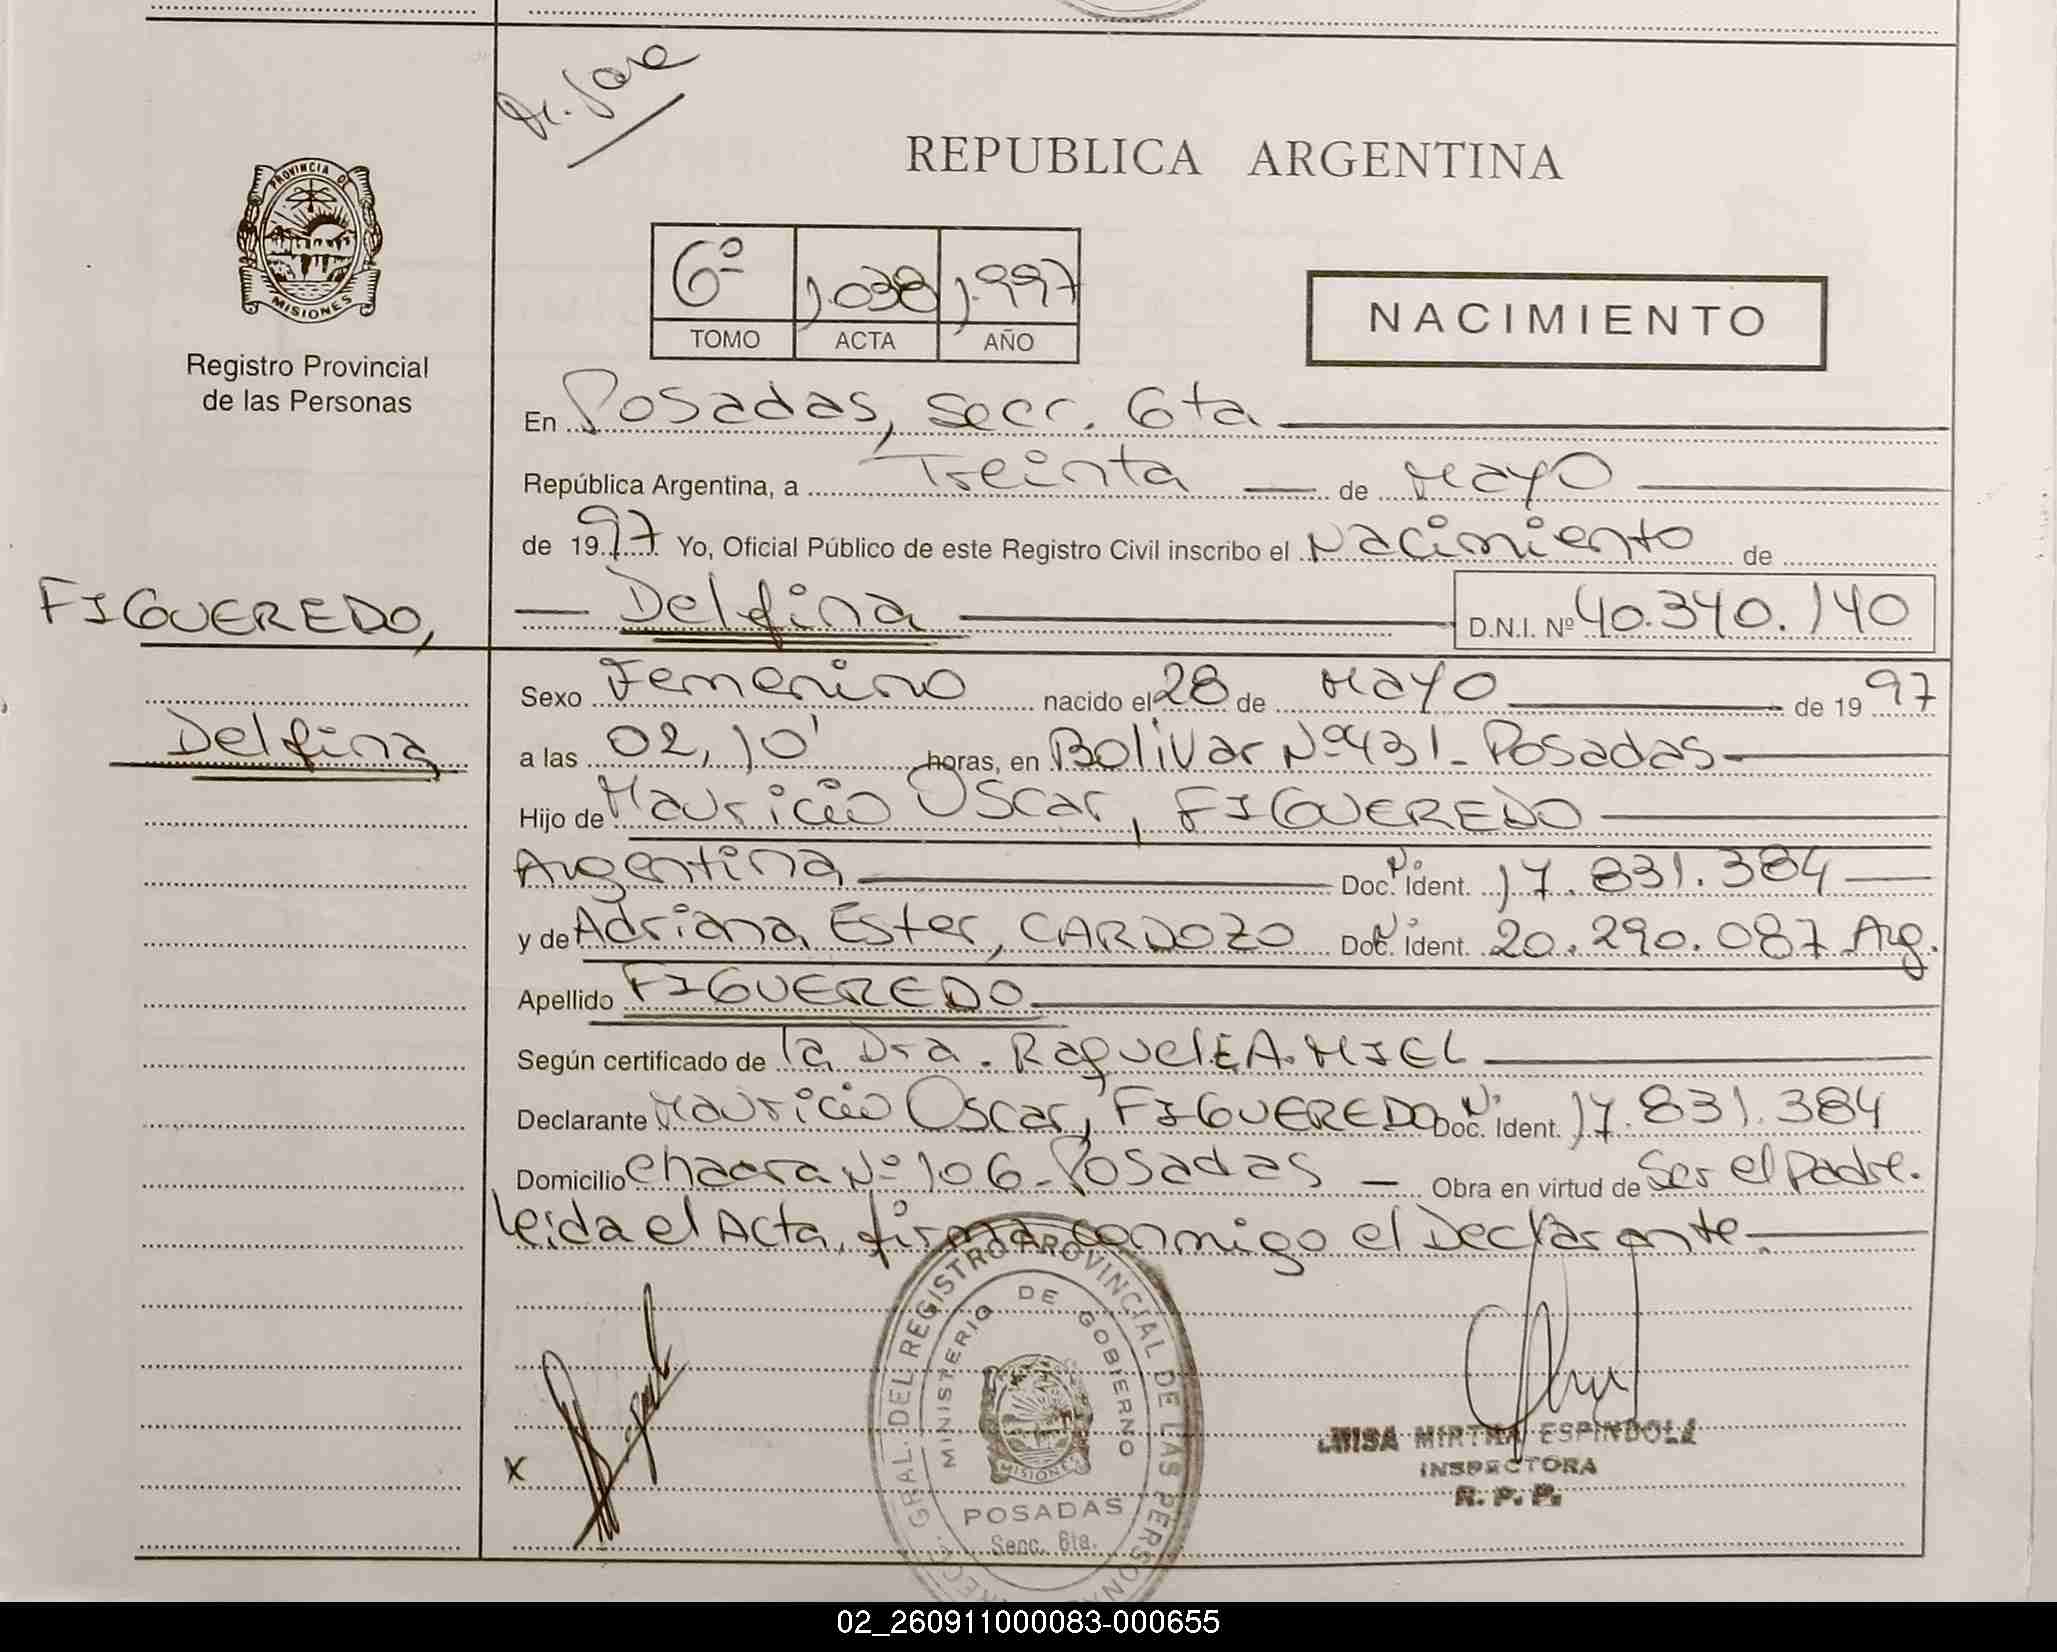 Dr. Jose
PROVINCIA DE
MISIONES
Registro Provincial
de las Personas
REPUBLICA ARGENTINA
6º 1.038 1.997
TOMO ACTA AÑO
NACIMIENTO
En Posadas, secc. 6ta
República Argentina, a Treinta de Mayo
de 1997 Yo, Oficial Público de este Registro Civil inscribo el Nacimiento de
FIGUEREDO, Delfina D.N.I. Nº 40.340.140
Sexo Femenino nacido el 28 de Mayo de 1997
Delfina
a las 02,10' horas, en Bolivar Nº 431 - Posadas
Hijo de Mauricio Oscar, FIGUEREDO
Argentina Doc. Nº Ident. 17.831.384
y de Adriana Ester, CARDOZO Doc. Nº Ident. 20.290.087 Arg.
Apellido FIGUEREDO
Según certificado de la Dra. Raquel E A. MIEL
Declarante Mauricio Oscar, FIGUEREDO Doc. Nº Ident. 17.831.384
Domicilio Chacra Nº 106 - Posadas Obra en virtud de Ser el Padre.
Leida el Acta, firma conmigo el Declarante.
x
DIRECC. GRAL. DEL REGISTRO PROVINCIAL DE LAS PERSONAS
MINISTERIO DE GOBIERNO
MISIONES
POSADAS
Secc. 6ta.
LUISA MIRTHA ESPINDOLA
INSPECTORA
R. P. P.
02_260911000083-000655